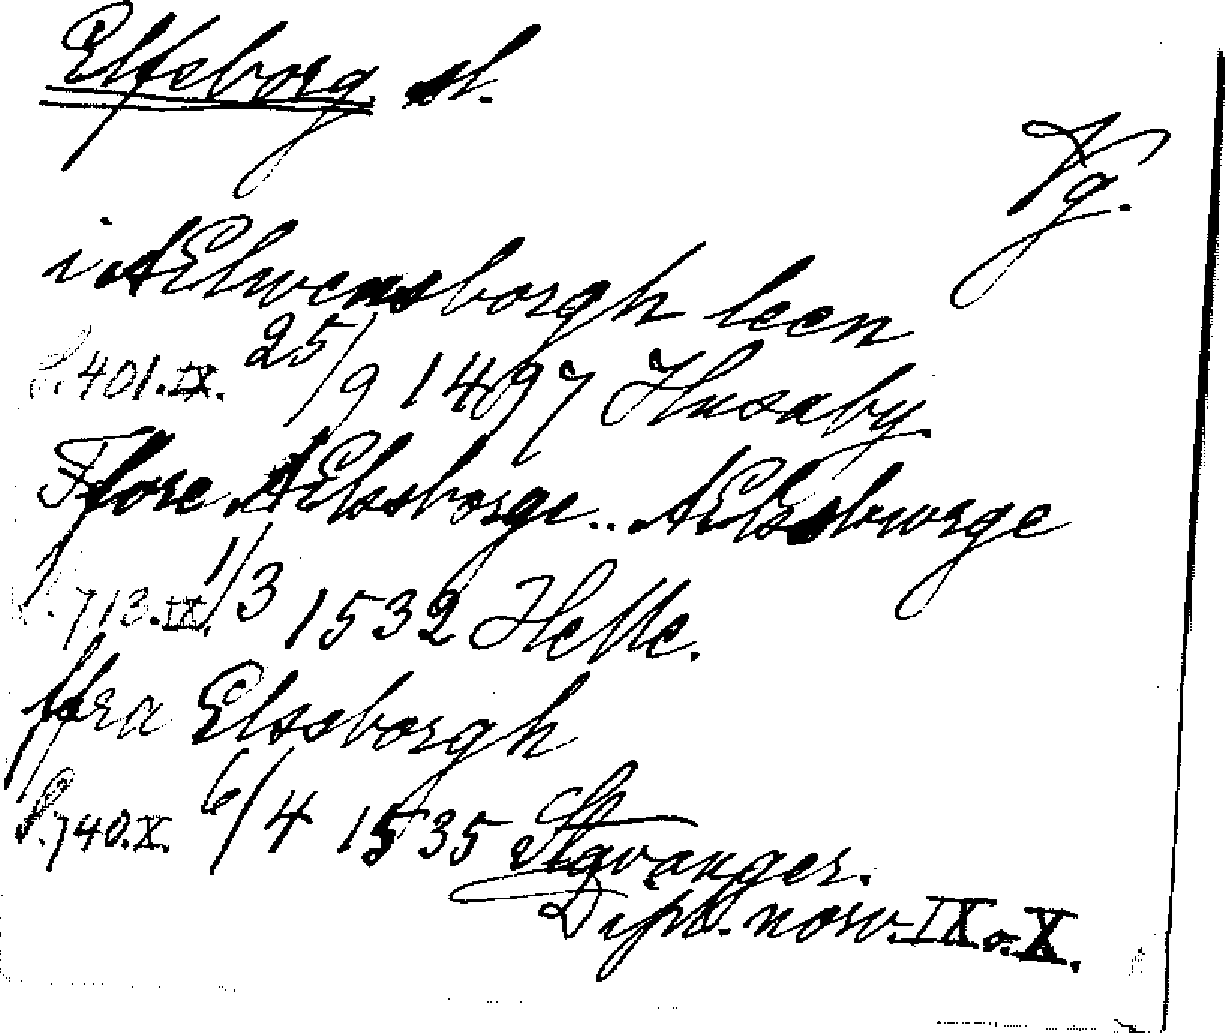 Elfsborg sl.
Vg.
i AElwensborgh leen
S. 401. IX. 25/9 1497 Husaby.
Ffore AElssborge.. AElssburge
S. 713. IX. 1/3 1532 Helle.
ffra Elssborgh
S. 740. X. 6/4 1535 Stavanger.
Dipl. norv. IX o. X.